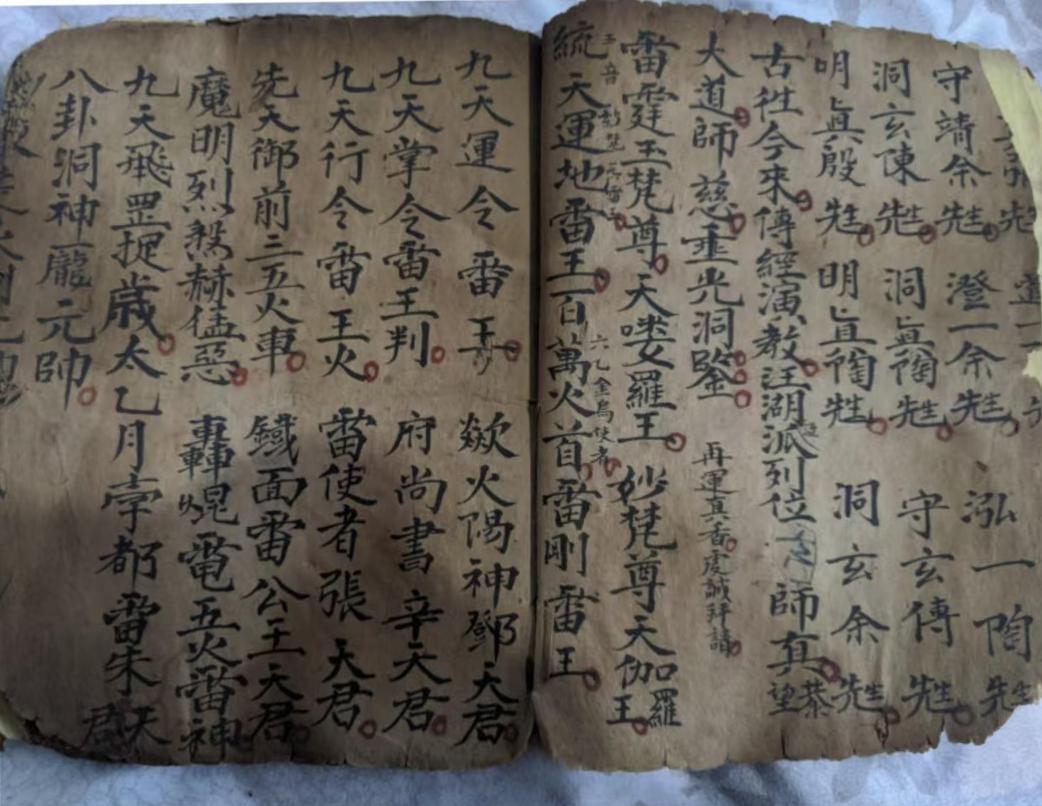 先
守靖余先生 澄一余先生 泓一陶先生
洞玄陳先生 洞眞陶先生 守玄傳先生
明眞殷先生 明眞陶先生 洞玄余先生
古徃今來傳經演教汪湖派列位 師真恭望
大道師慈垂光洞鑒 再運真香虔誠拜請
雷霆玉梵尊天婁羅王 妙梵尊天伽羅王
六乙金烏使者
統天運地雷王百萬火首雷剛雷王
九天運令雷王 歘火陽神鄧天君
九天掌令雷王判府尚書辛天君
九天行令雷王火雷使者張天君
先天御前三五火車鐵面雷公王天君
魔明烈煞赫猛惡轟混電五火雷神
九天飛罡捉歲太乙月孛都雷朱天君
八卦洞神龐元帥